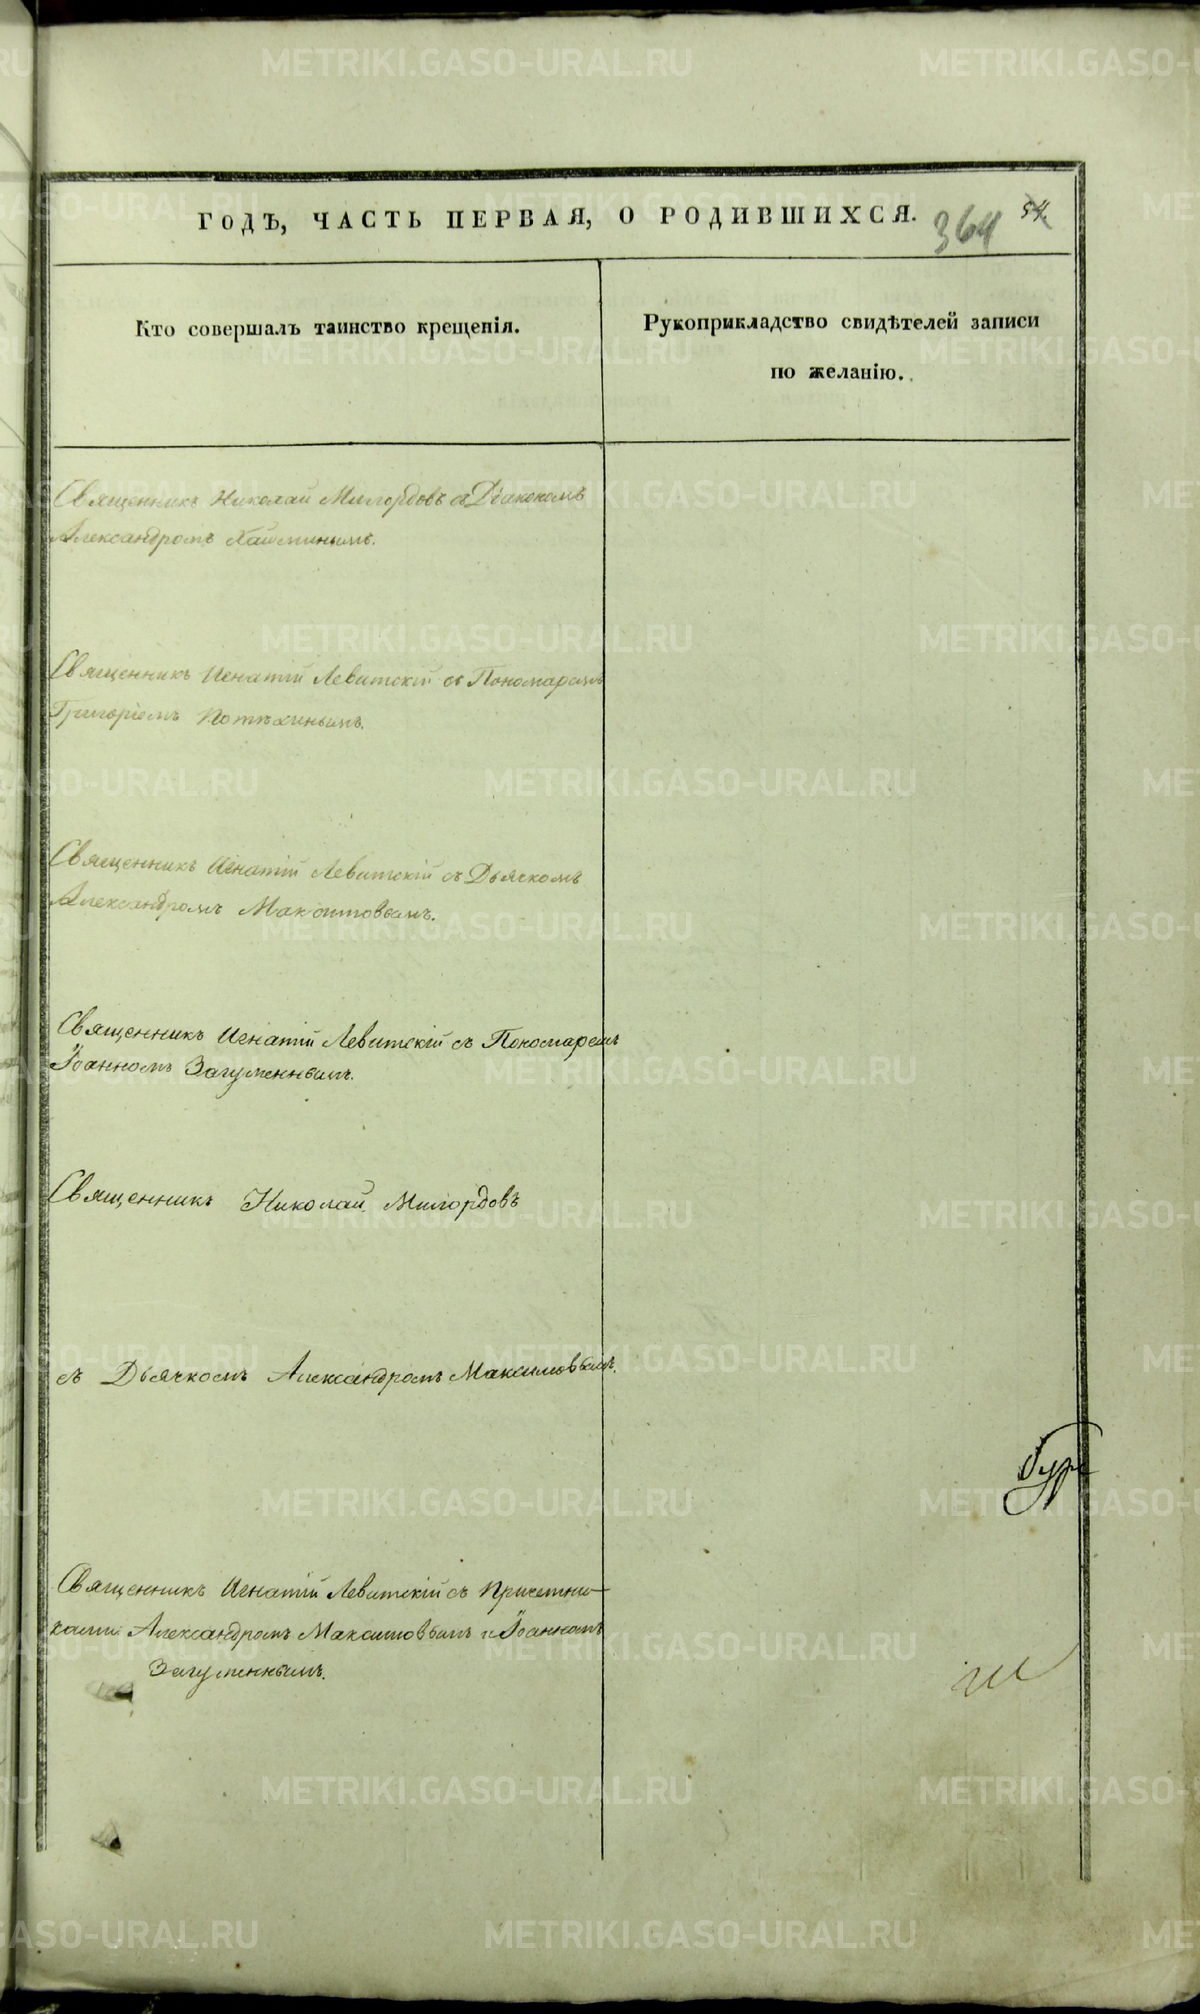 ГОДЪ, ЧАСТЬ ПЕРВАЯ, О РОДИВШИХСЯ.
364
54
Кто совершалъ таинство крещенія.
Рукоприкладство свидѣтелей записи
по желанію.
Священникъ Николай Милордовъ съ Діакономъ
Александромъ
Священникъ Игнатій Левитскій съ Пономаремъ
Григоріемъ Потѣхинымъ.
Священникъ Игнатій Левитскій съ Дьячкомъ
Александромъ Максимовымъ.
Священникъ Игнатій Левитскій съ Пономаремъ
Іоанномъ Загуменнымъ.
Священникъ Николай Милордовъ
съ Дьячкомъ Александромъ Максимовымъ.
Священникъ Игнатій Левитскій съ Причетни-
ками Александромъ Максимовымъ и Іоанномъ
Загуменнымъ.
METRIKI.GASO-URAL.RU